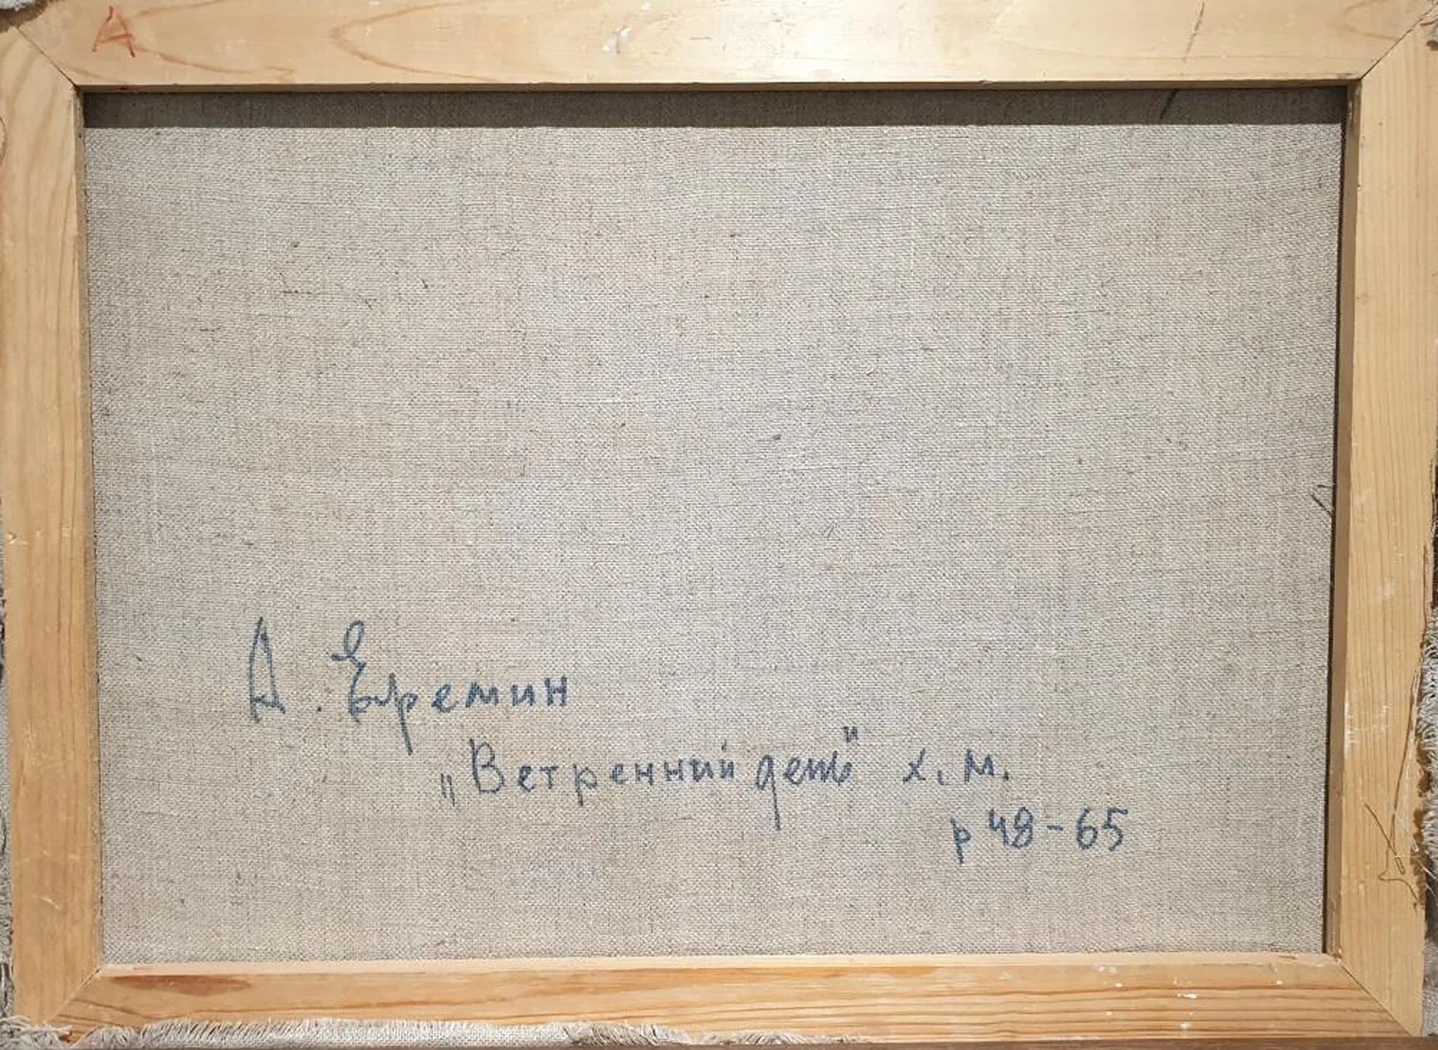 А
А. Еремин
„Ветренный день" х. м.
р 48-65